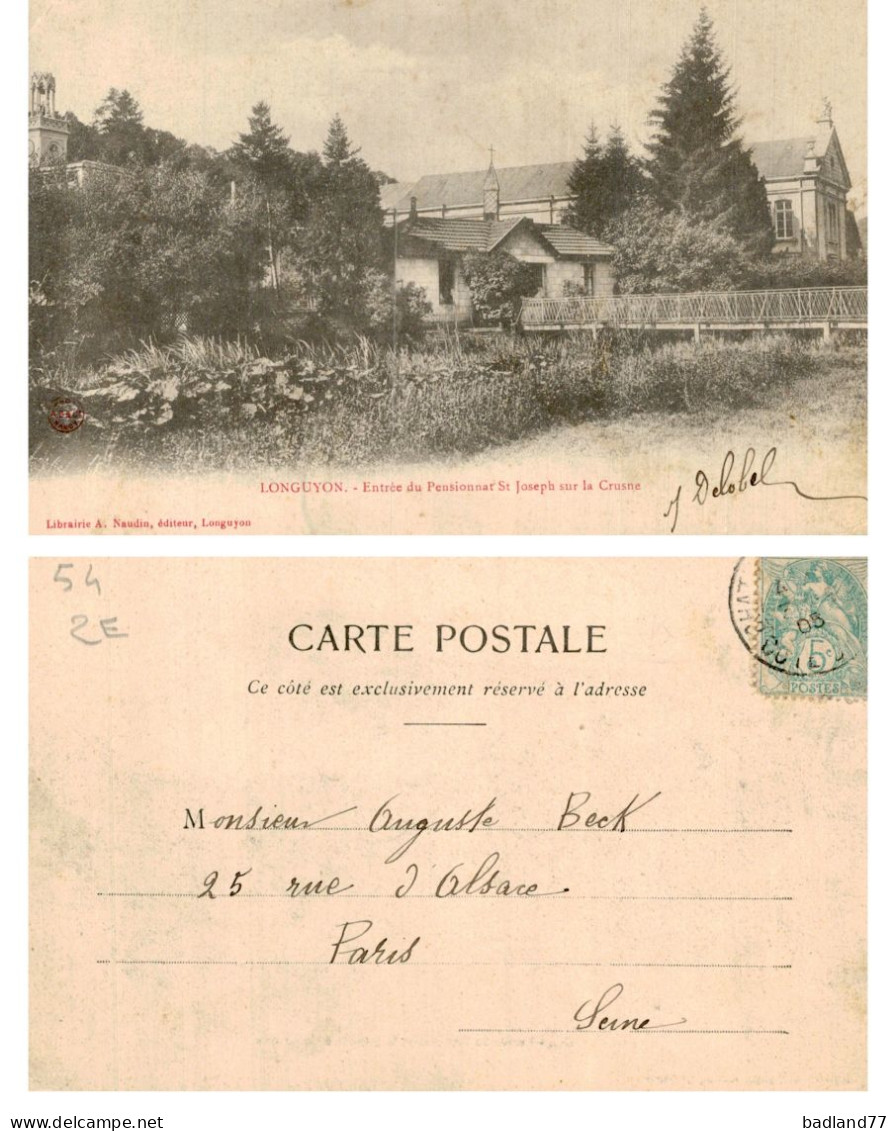 LONGUYON. - Entrée du Pensionnat St Joseph sur la Crusne
J Delobel
Librairie A. Naudin, éditeur, Longuyon
54
2E
CARTE POSTALE
Ce côté est exclusivement réservé à l'adresse
05
5c
POSTES
Monsieur Auguste Beck
25 rue d'Alsace
Paris
Seine
www.delcampe.net
badland77